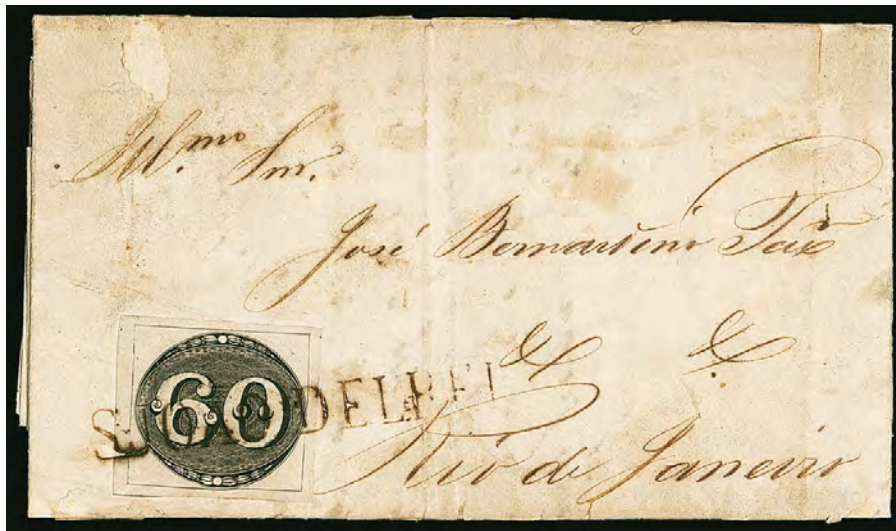 Ill.mo Snr.
José Bernardini
& &
60
DELREI
Rio de Janeiro